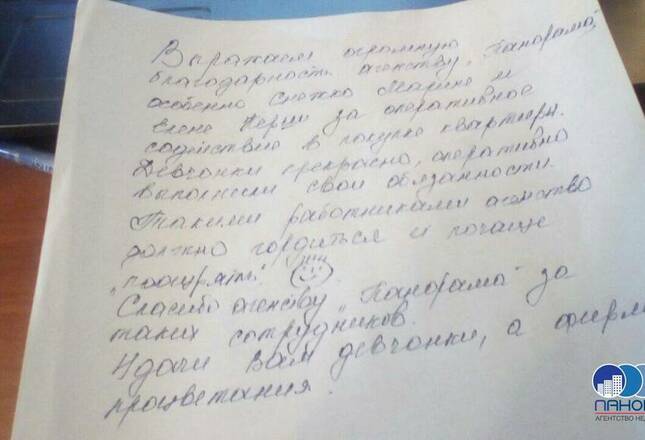 Выражаем огромную
благодарность агенству „Панорама"
особенно Снежко Марине и
Елене Керци за оперативное
содействие в покупке квартиры.
Девчонки прекрасно, оперативно
выполнили свои обязанности.
Такими работниками агенство
должно гордиться и почаще
„поощрять".
Спасибо агенству „Панорама" за
таких сотрудников.
Удачи Вам девчонки, а фирм
процветания.
ПАНО
АГЕНТСТВО НЕ